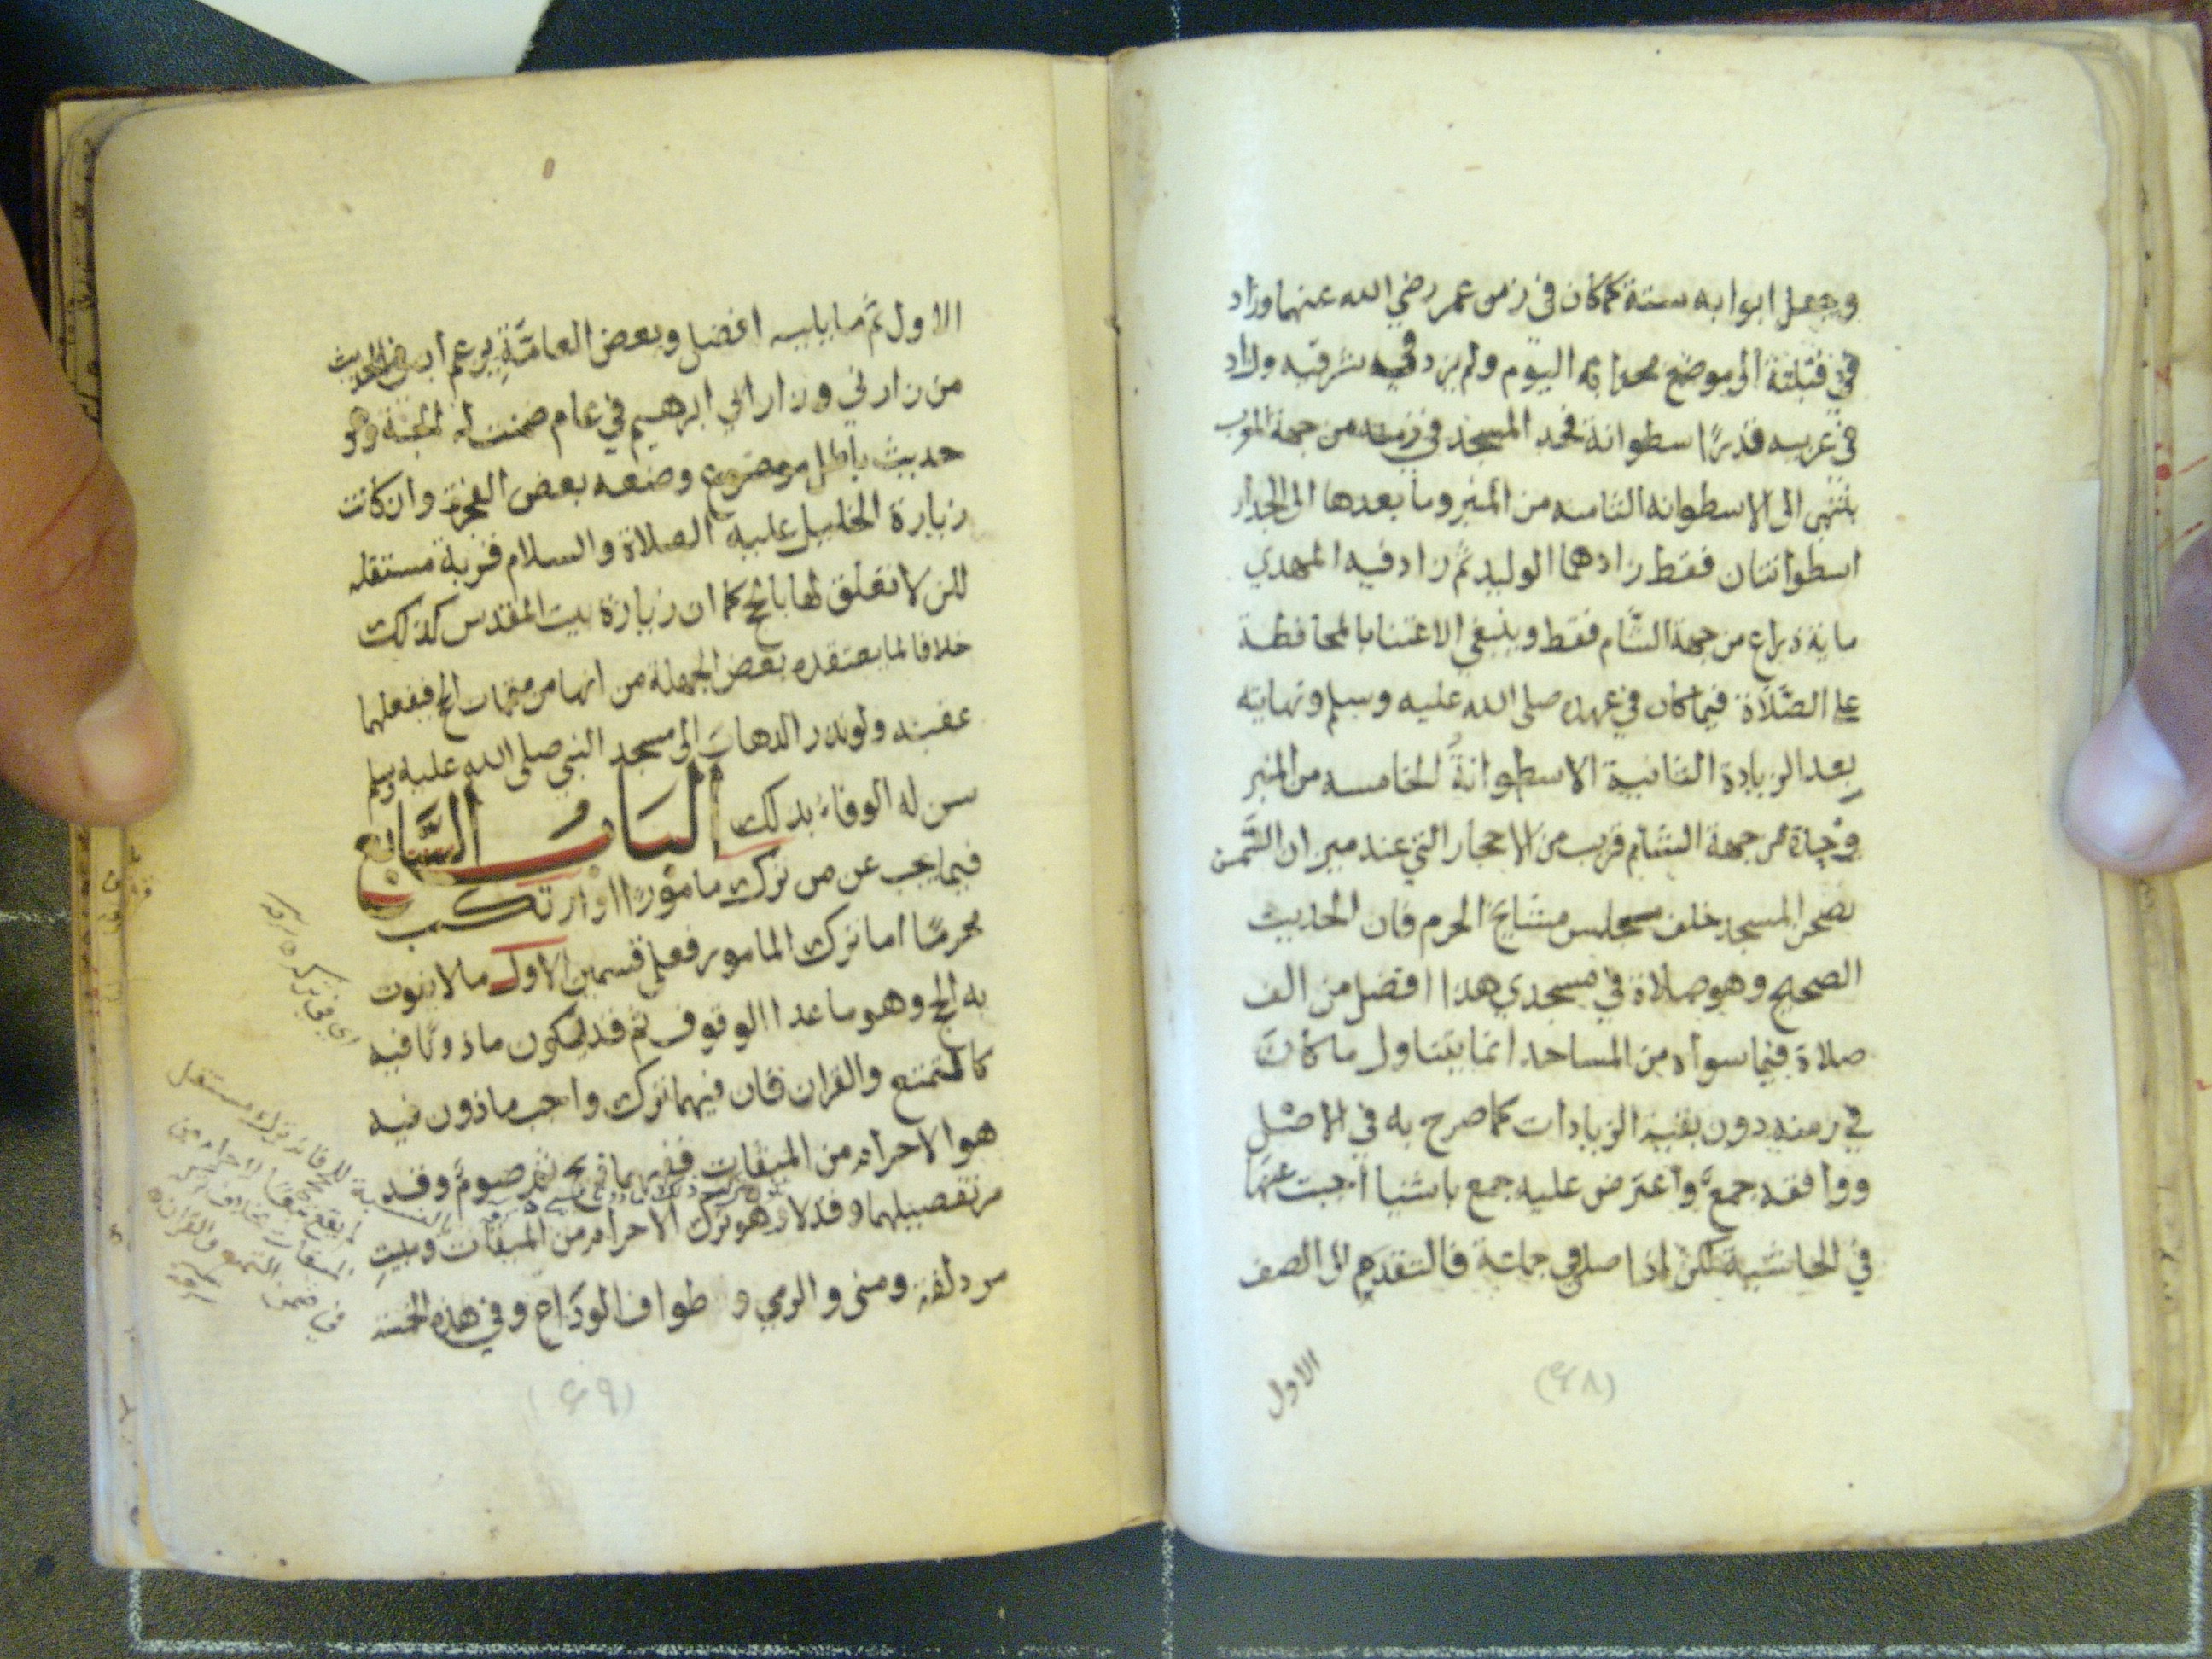 وجعل ابوابه ستة كما كان في زمن عمر رضي الله عنهما وزاد
في قبلته الى موضع محرابه اليوم ولم يزد في شرقيه وزاد
في غربيه قدرًا اسطوانة فحد المسجد في زمنه من جهة المغرب
ينتهى الى الاسطوانه الثامنه من المنبر وما بعدها الى الجدار
اسطوانتان فقط زادهما الوليد ثم زاد فيه المهدي
ماية ذراع من جهة الشام فقط وينبغي الاعتنا بالمحافظة
على الصَّلَاة فيما كان في عهده صلى الله عليه وسلم ونهايته
بعد الزيادة الثانية الاسطوانة الخامسه من المنبر
من جهة الشام قرب من الاحجار التي عند ميزان الشمس
بصحن المسجد خلف مجلس مشايخ الحرم فان الحديث
الصحيح وهو صلاة في مسجدي هذا افضل من الف
صلاة فيما سواه من المساجد انما يتناول ما كان
في زمنه دون بقية الزيادات كما صرح به في الاصل
ووافقه جمع واعترض عليه جمع باشيا اجبت عنها
في الحاشية لكن اذا صلى في جماعة فالتقدم الى الصف
الاول
(٤٨)
الاول ثم ما يليه افضل وبعض العامَّةِ يزعم ان في الحديث
من زارني وزار ابي ابرهيم في عام ضمنت له الجنة وهو
حديث باطل موضوع وضعه بعض الفجرة وان كانت
زيارة الخليل عليه الصلاة والسلام قربة مستقله
لكن لا تعلق لها بالحج كما ان زيارة بيت المقدس كذلك
خلافا لما يعتقده بعض الجهلة من انها من متممات الحج فيفعلها
عقبه ولو نذر الذهاب الى مسجد النبي صلى الله عليه وسلم
سن له الوفاء بذلك البَابُ السَّابع
فيما يجب على من ترك مامورًا او ارتكب
محرمًا اما ترك المامور فعلى قسمين الاول ما لا يفوت
به الحج وهو ما عدا الوقوف ثم قد يكون ماذونًا فيه
كالتمتع والقران فان فيهما ترك واجب ماذون فيه
هو الاحرام من الميقات ففيهما ذبح ثم صوم وقد
مر تفصيلهما وقد لا وهو ترك الاحرام من الميقات ومبيت
مزدلفة ومنى والرمي و طواف الوداع وفي هذه الخمسة
اي في تركه
(٤٩)